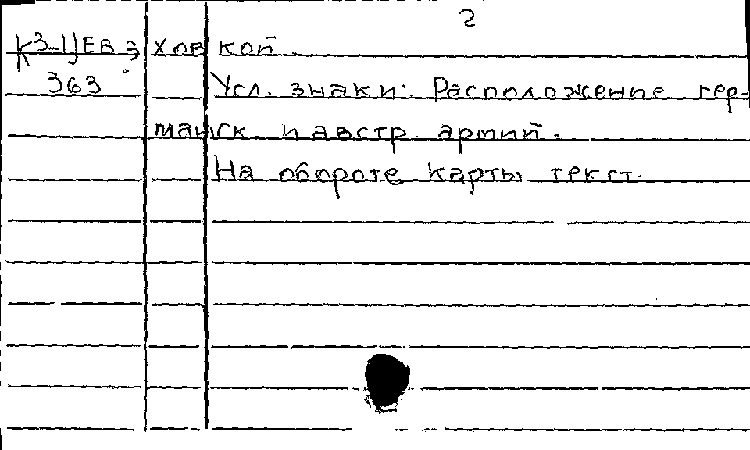 2
К3-ЦЕв 3 ховкой.
363 Усл. знаки: Расположение гер-
манск. и австр. армий.
На обороте карты текст.